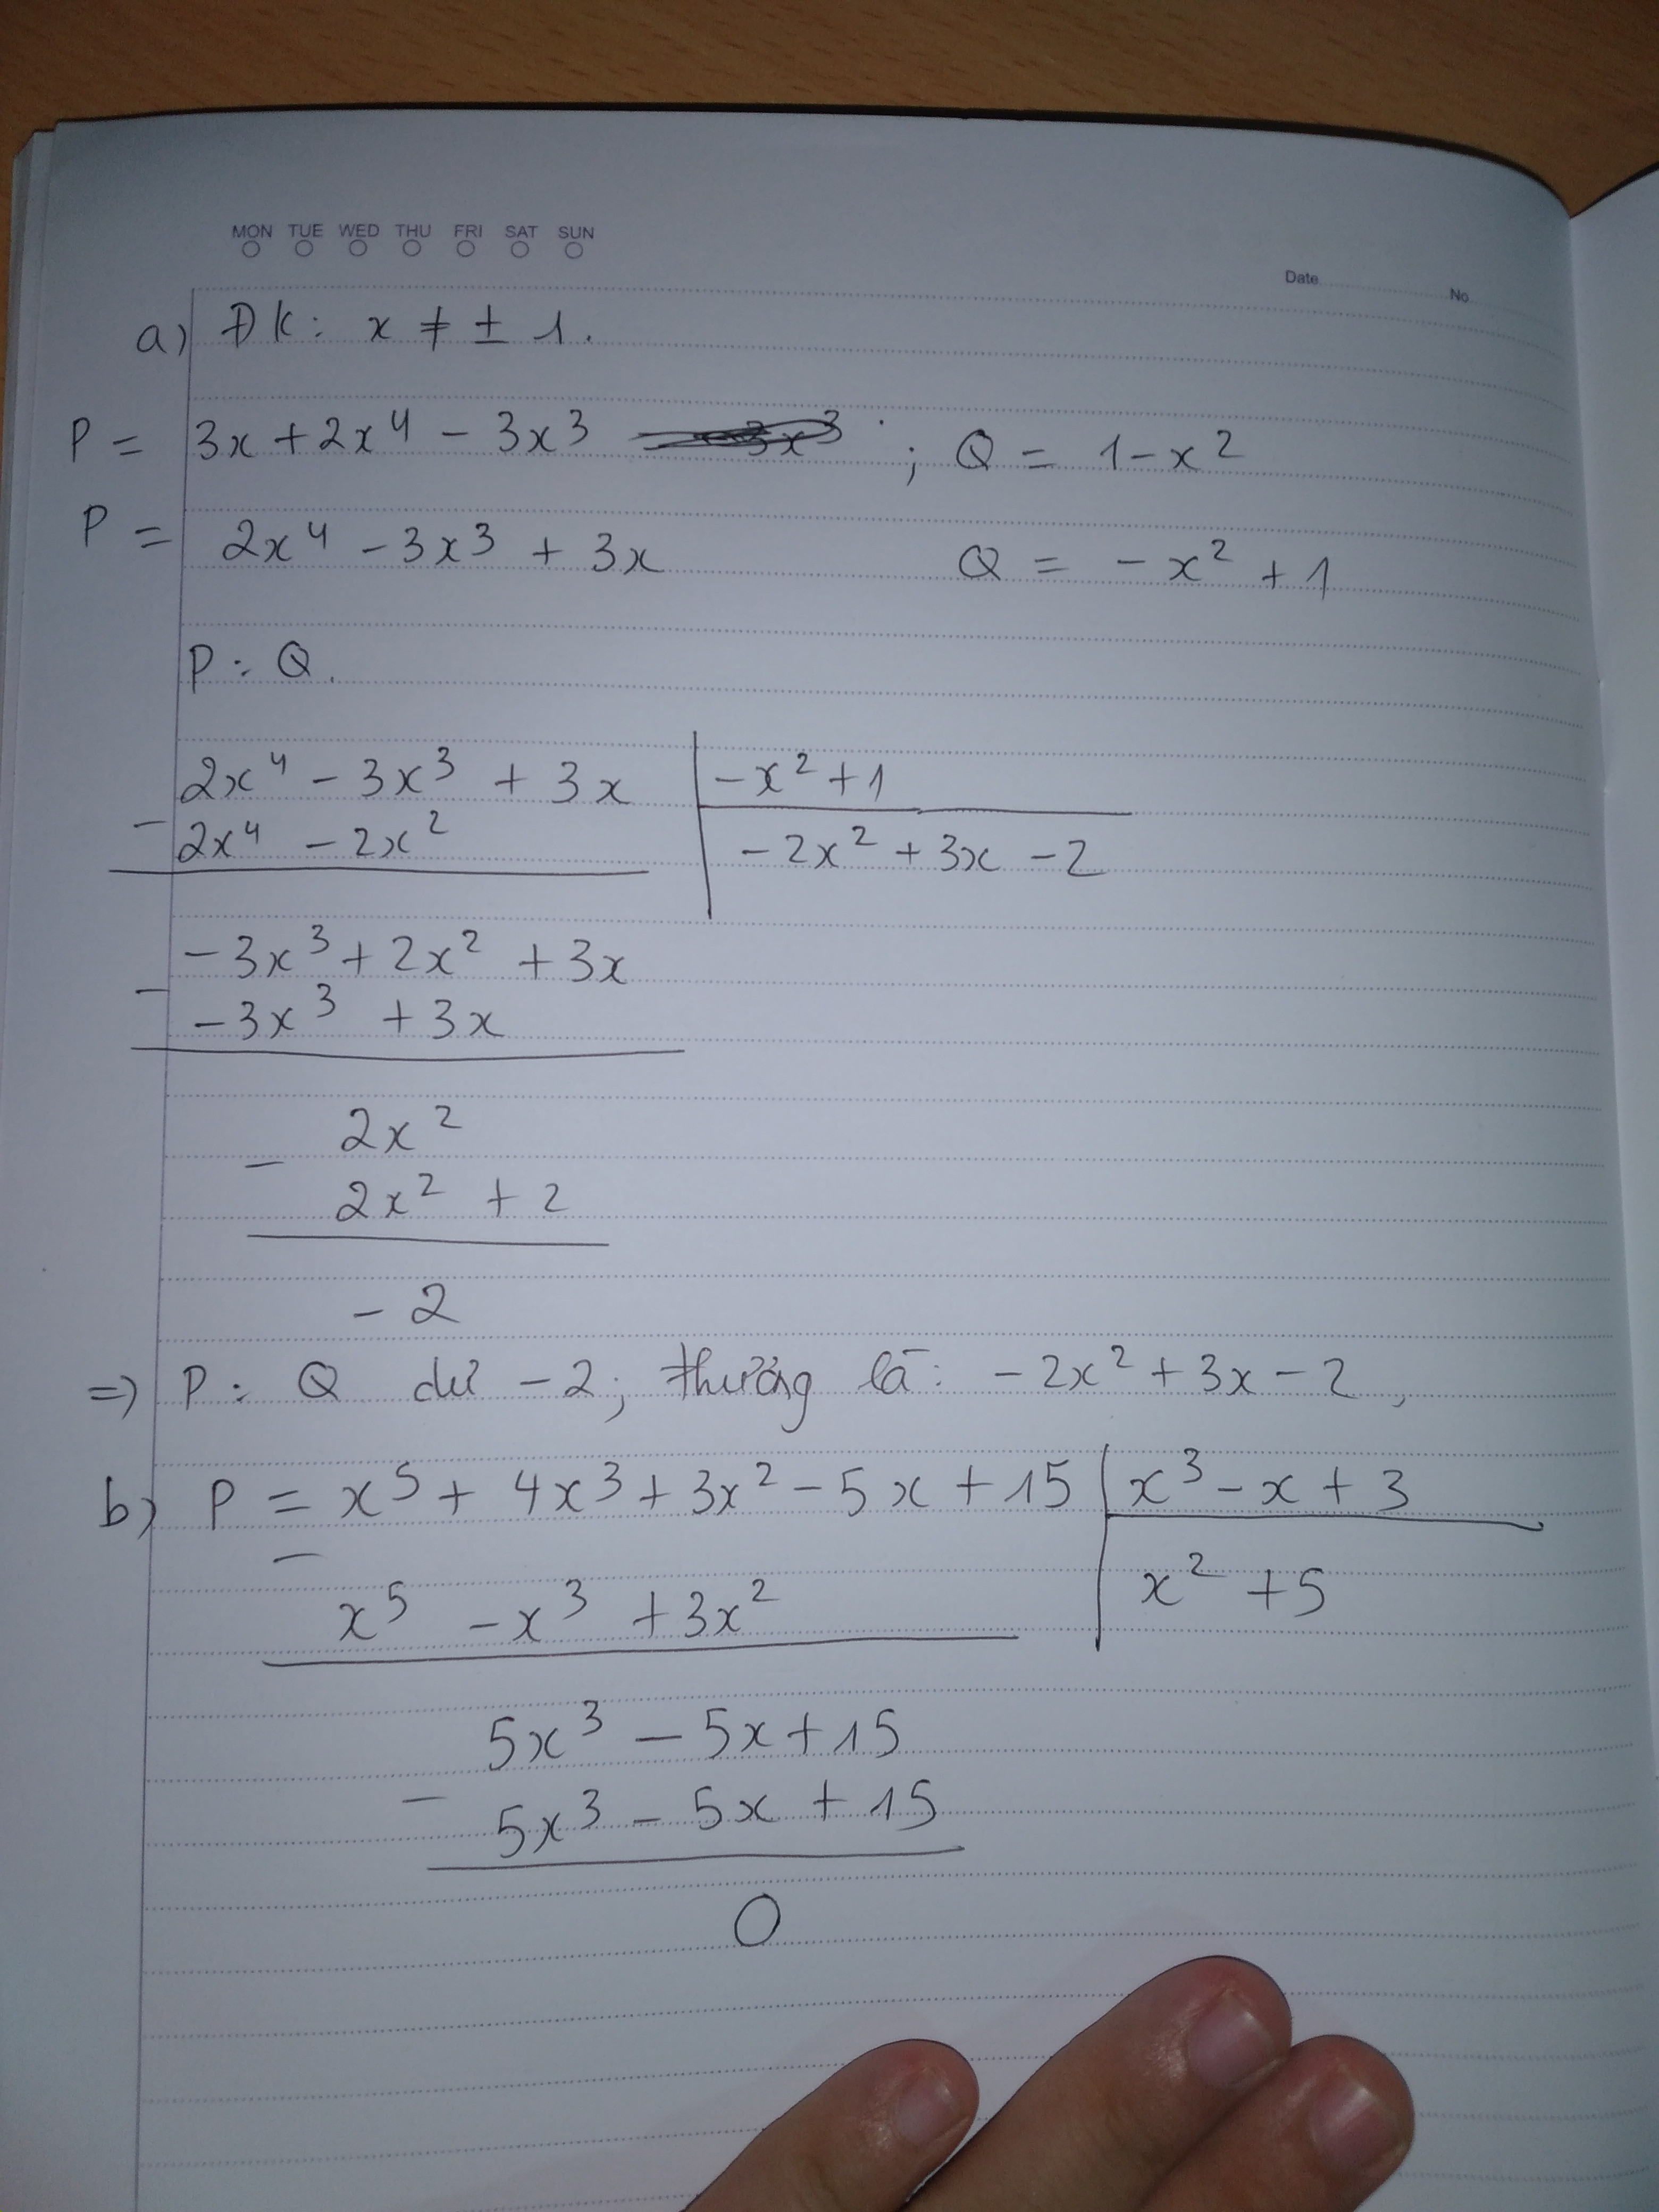 MON TUE WED THU FRI SAT SUN
Date No
a) ĐK: x ≠ ± 1.
P = 3x + 2x⁴ - 3x³ ; Q = 1 - x²
P = 2x⁴ - 3x³ + 3x Q = - x² + 1
P : Q.
2x⁴ - 3x³ + 3x | -x² + 1
- 2x⁴ - 2x² | - 2x² + 3x - 2
- 3x³ + 2x² + 3x
- - 3x³ + 3x
2x²
- 2x² + 2
- 2
=) P : Q dư -2; thương là: - 2x² + 3x - 2,
b) P = x⁵ + 4x³ + 3x² - 5x + 15 | x³ - x + 3
- x⁵ - x³ + 3x² | x² + 5
5x³ - 5x + 15
- 5x³ - 5x + 15
0